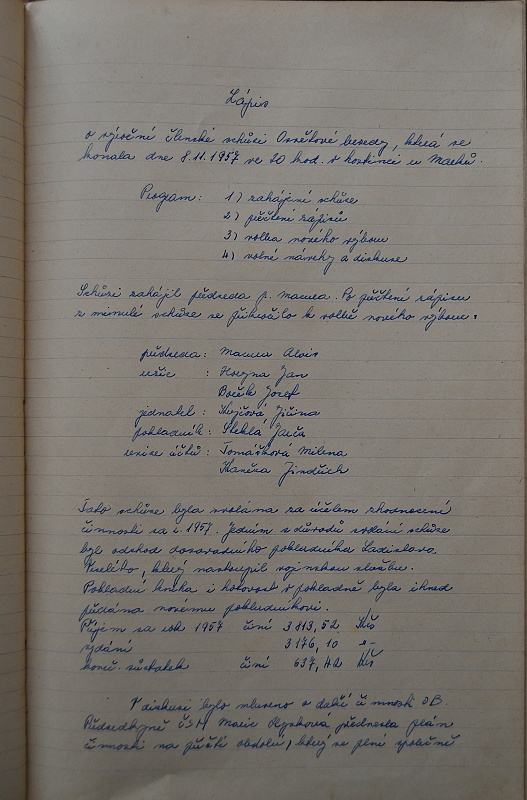 Zápis
o výroční členské schůzi Osvětové besedy, která se
konala dne 8.11.1957 ve 20 hod. v hostinci u Macků.
Program: 1) zahájení schůze
2) přečtení zápisů
3) volba nového výboru
4) volné návrhy a diskuse
Schůzi zahájil předseda p. Macura. Po přečtení zápisu
z minulé schůze se přikročilo k volbě nového výboru:
předseda: Macura Alois
: Jan
Bočík Josef
jednatel: Jiřina
pokladník: Steklá Jarča
revize účtů: Tomášková Milena
Jindřich
Tato schůze byla svolána za účelem zhodnocení
činnosti za r. 1957. Jedním z důvodů svolání schůze
byl odchod dosavadního pokladníka Ladislava
Veselého, který nastoupil vojenskou službu.
Pokladní kniha i hotovost v pokladně byla ihned
předána novému pokladníkovi.
Příjem za rok 1957 činí 3813,52 Kčs
vydání 3176,10 "-
koneč. zůstatek činí 637,42 Kčs
V diskusi bylo mluveno o další činnosti OB.
Předsedkyně ČSM Marie přednesla plán
činnosti na příští období, který se plní společně